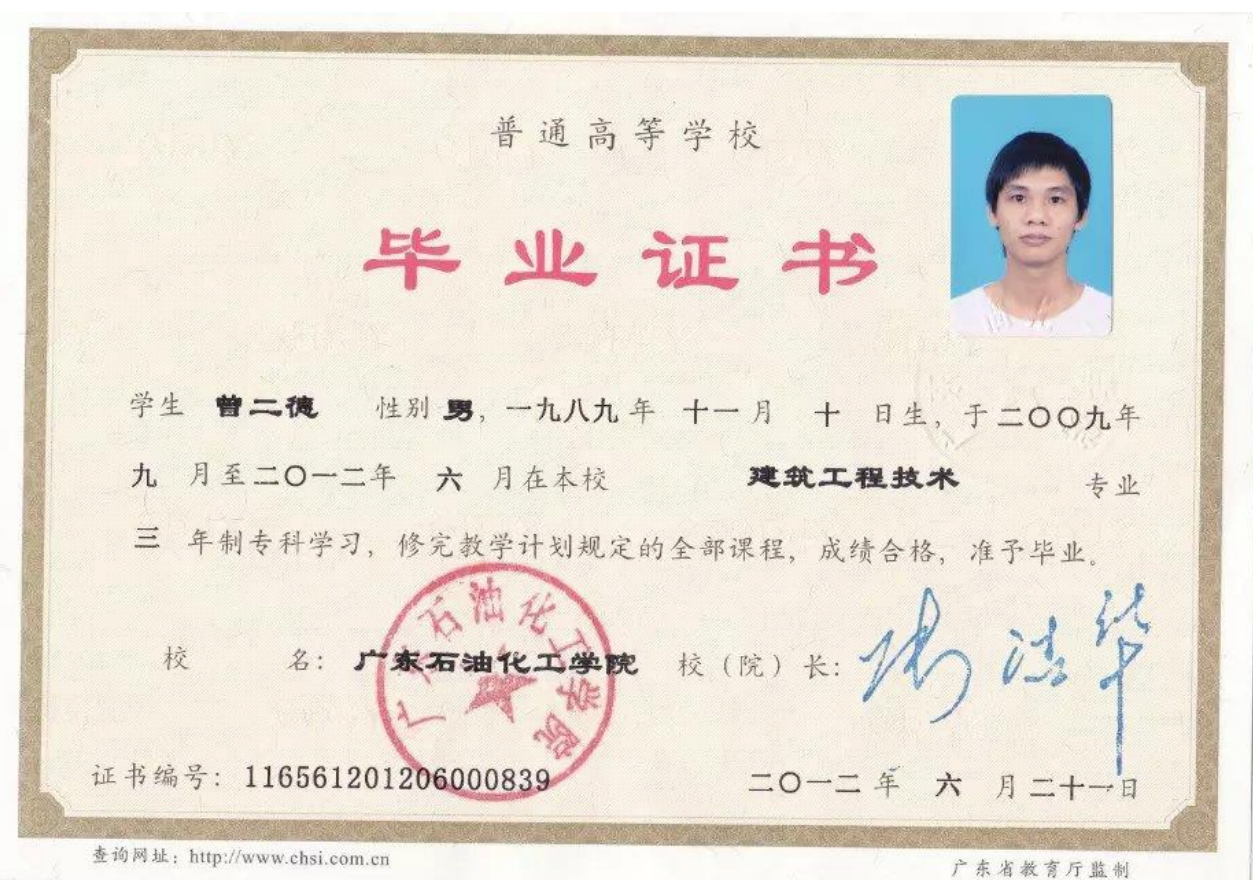 普通高等学校
毕业证书
学生 曾二德 性别 男，一九八九年 十一月 十 日生，于二〇〇九年
九 月至二〇一二年 六 月在本校 建筑工程技术 专业
三 年制专科学习，修完教学计划规定的全部课程，成绩合格，准予毕业。
广东石油化工学院
校 名：广东石油化工学院 校（院）长：
证书编号：116561201206000839 二〇一二年 六 月二十一日
查询网址：http://www.chsi.com.cn
广东省教育厅监制